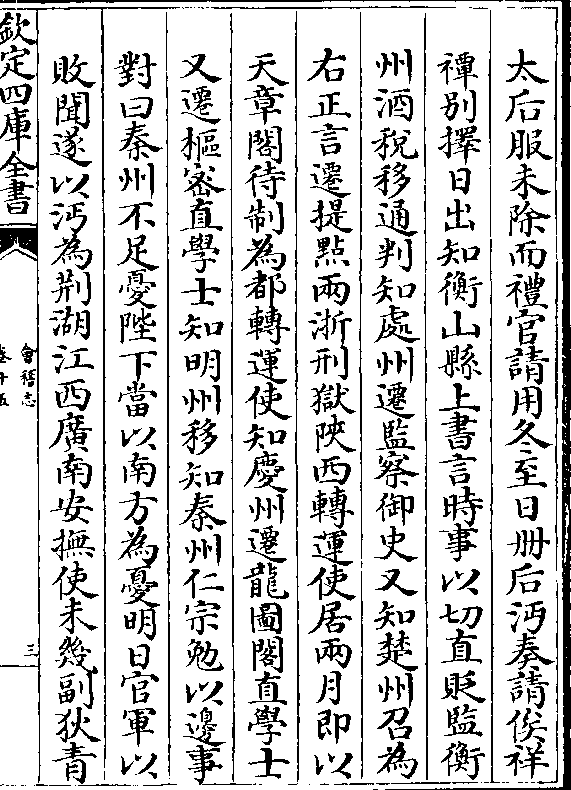 太后服未除而禮官請用冬至日冊后沔奏請俟祥
禫別擇日出知衡山縣上書言時事以切直貶監衡
州酒稅移通判知處州遷監察御史又知楚州召為
右正言遷提點兩浙刑獄陝西轉運使居兩月即以
天章閣待制為都轉運使知慶州遷龍圖閣直學士
又遷樞密直學士知明州移知秦州仁宗勉以邊事
對曰秦州不足憂陛下當以南方為憂明日官軍以
敗聞遂以沔為荆湖江西廣南安撫使未幾副狄青
欽定四庫全書
會稽志
卷十五
三